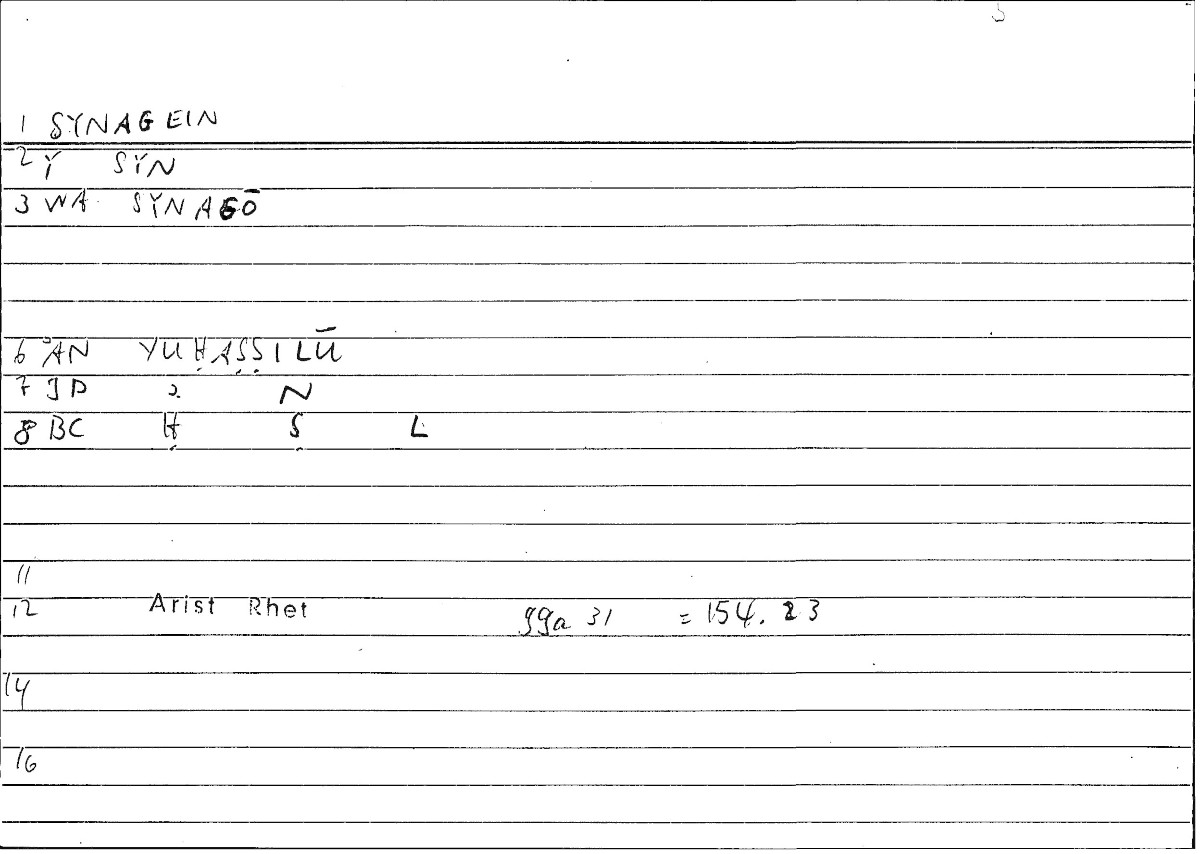 1 SỴNAGEIN
2 Ỵ SỴN
3 WA SỴNAGŌ
6 ʾAN YUḤAṢṢILŪ
7 ID ʾ N
8 BC Ḥ Ṣ L
11
12 Arist Rhet 99a 31 = 154.23
14
16